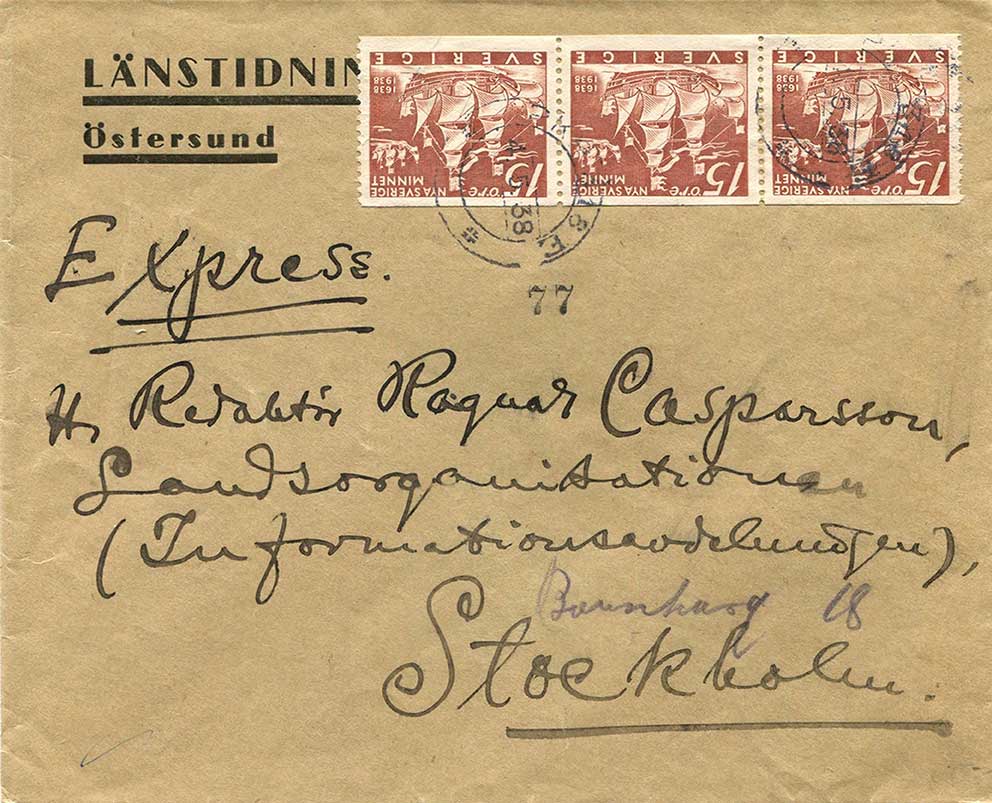 LÄNSTIDNIN
Östersund
SVERIGE SVERIGE SVERIGE
1638 1938 1638 1938 1638 1938
15 öre NYA SVERIGE MINNET 15 öre NYA SVERIGE MINNET 15 öre NYA SVERIGE MINNET
4 5 38
Express.
77
Hr Redaktör Ragnar Casparsson,
Landsorganisationen
(Informationsavdelningen),
18
Stockholm.